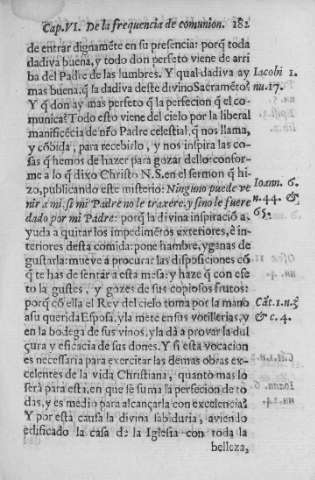 Cap. VI. De la frequencia de comunion. 182
de entrar dignamēte en su presencia: porq̄ toda
dadiva buena, y todo don perfeto viene de arri
ba del Padre de las lumbres. Y qual dadiva ay
mas buena, q̄ la dadiva deste divino Sacramēto?
Y q̄ don ay mas perfeto q̄ la perfecion q̄ el co-
munica? Todo esto viene del cielo por la liberal
manificēcia de nr̄o Padre celestial, q̄ nos llama,
y cōbida, para recebirlo, y nos inspira las co-
sas q̄ hemos de hazer para gozar dello: confor-
me a lo q̄ dixo Christo N. S. en el sermon q̄ hi-
zo, publicando este misterio: Ninguno puede ve
nir a mi, si mi Padre no le traxere, y sino le fuere
dado por mi Padre: porq̄ la divina inspiració a-
yuda a quitar los impedimētos exteriores, è in-
teriores desta comida: pone hambre, y ganas de
gustarla: mueve a procurar las disposiciones cō
q̄ te has de sentar a esta mesa: y haze q̄ con efe-
to la gustes, y gozes de sus copiosos frutos:
porq̄ cō ella el Rey del cielo toma por la mano
a su querida Esposa, y la mete en sus botillerias, y
en la bodega de sus vinos, y la dà a provar la dul
çura y eficacia de sus dones. Y si esta vocacion
es necessaria para exercitar las demas obras ex-
celentes de la vida Christiana, quanto mas lo
serà para esta, en que se suma la perfecion de to
das, y es medio para alcançarla con excelencia?
Y por esta causa la divina sabiduria, aviendo
edificado la casa de la Iglesia con toda la
belleza,
Iacobi 1.
nu. 17.
Ioann. 6.
n. 44. &
65.
Cāt. 1. n. 3
& c. 4.